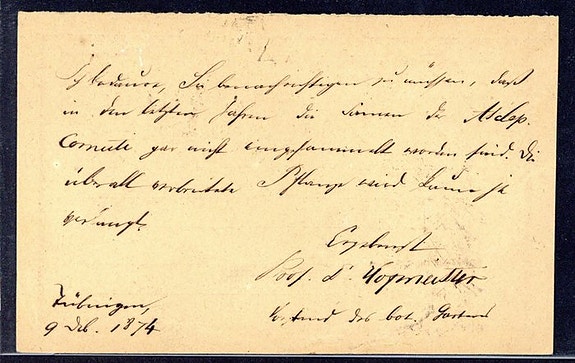 Ich bedaure, Sie benachrichtigen zu müssen, daß
in den letzten Jahren die Samen der Asclep.
Cornuti gar nicht eingesammelt worden sind. Die
überall verbreitete Pflanze wird kaum je
verlangt.
Ergebenst
Prof. Dr. Hofmeister
Vorstand des bot. Gartens
Tübingen,
9 Dec. 1874